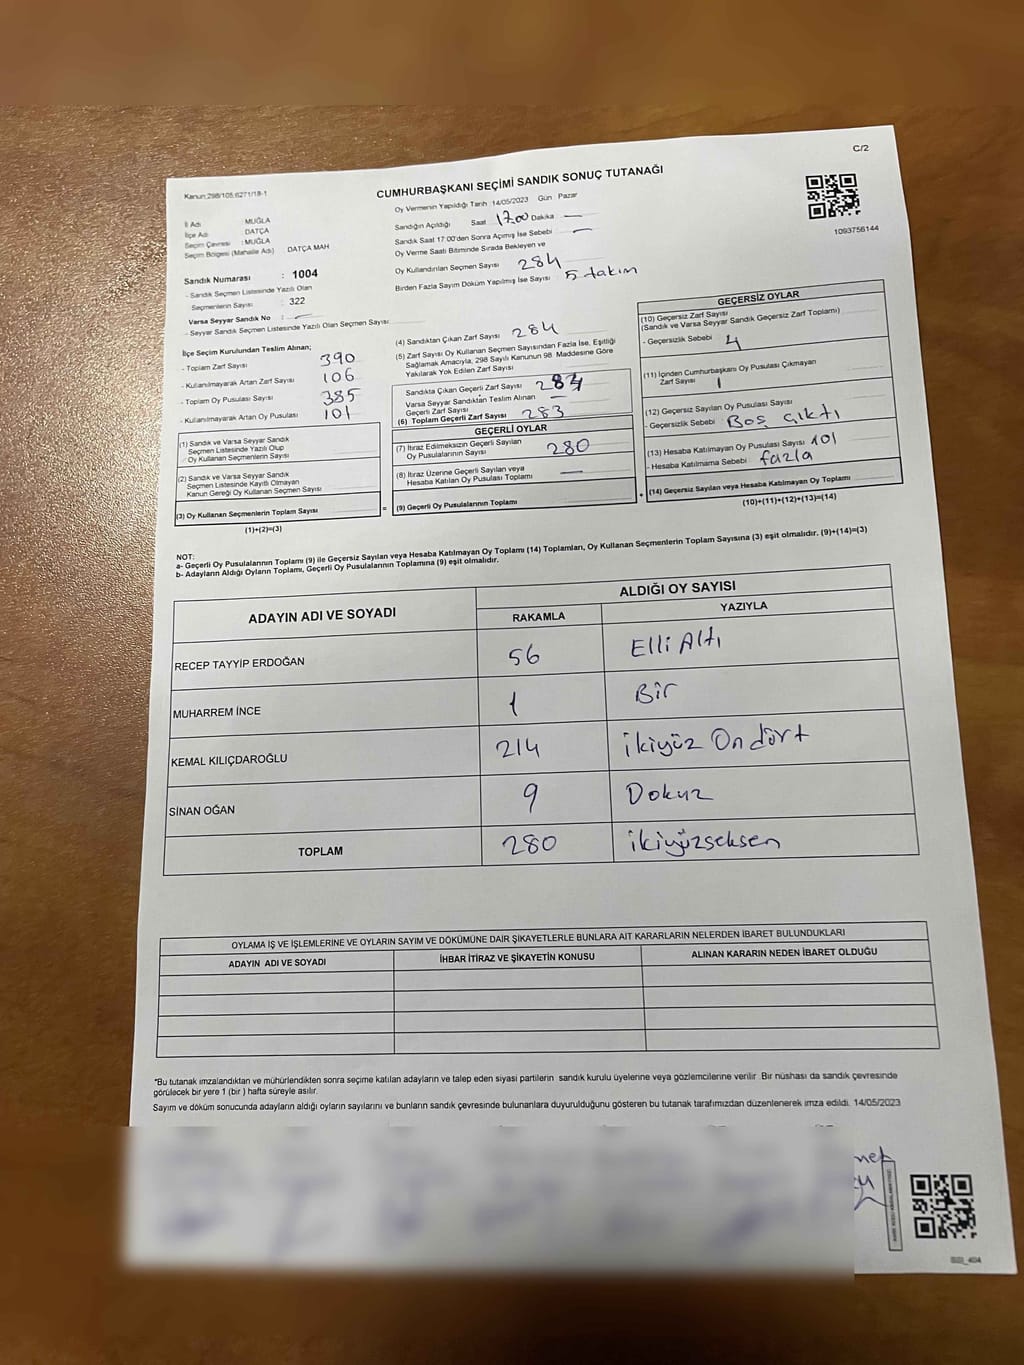 C/2
Kanun:298/105;6271/18-1
CUMHURBAŞKANI SEÇİMİ SANDIK SONUÇ TUTANAĞI
İl Adı : MUĞLA
İlçe Adı : DATÇA
Seçim Çevresi : MUĞLA
Seçim Bölgesi (Mahalle Adı) DATÇA MAH
Sandık Numarası : 1004
- Sandık Seçmen Listesinde Yazılı Olan
Seçmenlerin Sayısı : 322
Varsa Seyyar Sandık No : —
- Seyyar Sandık Seçmen Listesinde Yazılı Olan Seçmen Sayısı:
Oy Vermenin Yapıldığı Tarih 14/05/2023 Gün Pazar
Sandığın Açıldığı Saat 1700 Dakika —
Sandık Saat 17:00'den Sonra Açımış İse Sebebi —
Oy Verme Saati Bitiminde Sırada Bekleyen ve
Oy Kullandırılan Seçmen Sayısı 284
Birden Fazla Sayım Döküm Yapılmış İse Sayısı 5 takım
1093756144
İlçe Seçim Kurulundan Teslim Alınan;
- Toplam Zarf Sayısı 390
- Kullanılmayarak Artan Zarf Sayısı 106
- Toplam Oy Pusulası Sayısı 385
- Kullanılmayarak Artan Oy Pusulası 101
(1) Sandık ve Varsa Seyyar Sandık
Seçmen Listesinde Yazılı Olup
Oy Kullanan Seçmenlerin Sayısı
(2) Sandık ve Varsa Seyyar Sandık
Seçmen Listesinde Kayıtlı Olmayan
Kanun Gereği Oy Kullanan Seçmen Sayısı
(3) Oy Kullanan Seçmenlerin Toplam Sayısı
(1)+(2)=(3)
=
(4) Sandıktan Çıkan Zarf Sayısı 284
(5) Zarf Sayısı Oy Kullanan Seçmen Sayısından Fazla İse, Eşitliği
Sağlamak Amacıyla, 298 Sayılı Kanunun 98. Maddesine Göre
Yakılarak Yok Edilen Zarf Sayısı
Sandıkta Çıkan Geçerli Zarf Sayısı
Varsa Seyyar Sandıktan Teslim Alınan
Geçerli Zarf Sayısı —
(6) Toplam Geçerli Zarf Sayısı 283
GEÇERLİ OYLAR
(7) İtiraz Edilmeksizin Geçerli Sayılan
Oy Pusulalarının Sayısı 280
(8) İtiraz Üzerine Geçerli Sayılan veya
Hesaba Katılan Oy Pusulası Toplamı —
(9) Geçerli Oy Pusulalarının Toplamı
+
GEÇERSİZ OYLAR
(10) Geçersiz Zarf Sayısı
(Sandık ve Varsa Seyyar Sandık Geçersiz Zarf Toplamı)
- Geçersizlik Sebebi 4
(11) İçinden Cumhurbaşkanı Oy Pusulası Çıkmayan
Zarf Sayısı 1
(12) Geçersiz Sayılan Oy Pusulası Sayısı
- Geçersizlik Sebebi Boş çıktı
(13) Hesaba Katılmayan Oy Pusulası Sayısı 101
- Hesaba Katılmama Sebebi fazla
(14) Geçersiz Sayılan veya Hesaba Katılmayan Oy Toplamı
(10)+(11)+(12)+(13)=(14)
NOT:
a- Geçerli Oy Pusulalarının Toplamı (9) ile Geçersiz Sayılan veya Hesaba Katılmayan Oy Toplamı (14) Toplamları, Oy Kullanan Seçmenlerin Toplam Sayısına (3) eşit olmalıdır. (9)+(14)=(3)
b- Adayların Aldığı Oyların Toplamı, Geçerli Oy Pusulalarının Toplamına (9) eşit olmalıdır.
ADAYIN ADI VE SOYADI
ALDIĞI OY SAYISI
RAKAMLA YAZIYLA
RECEP TAYYİP ERDOĞAN 56 Elli Altı
MUHARREM İNCE 1 Bir
KEMAL KILIÇDAROĞLU 214 ikiyüz On dört
SİNAN OĞAN 9 Dokuz
TOPLAM 280 ikiyüzseksen
OYLAMA İŞ VE İŞLEMLERİNE VE OYLARIN SAYIM VE DÖKÜMÜNE DAİR ŞİKAYETLERLE BUNLARA AİT KARARLARIN NELERDEN İBARET BULUNDUKLARI
ADAYIN ADI VE SOYADI İHBAR İTİRAZ VE ŞİKAYETİN KONUSU ALINAN KARARIN NEDEN İBARET OLDUĞU
*Bu tutanak imzalandıktan ve mühürlendikten sonra seçime katılan adayların ve talep eden siyasi partilerin sandık kurulu üyelerine veya gözlemcilerine verilir. Bir nüshası da sandık çevresinde
görülecek bir yere 1 (bir) hafta süreyle asılır.
Sayım ve döküm sonucunda adayların aldığı oyların sayılarını ve bunların sandık çevresinde bulunanlara duyurulduğunu gösteren bu tutanak tarafımızdan düzenlenerek imza edildi. 14/05/2023